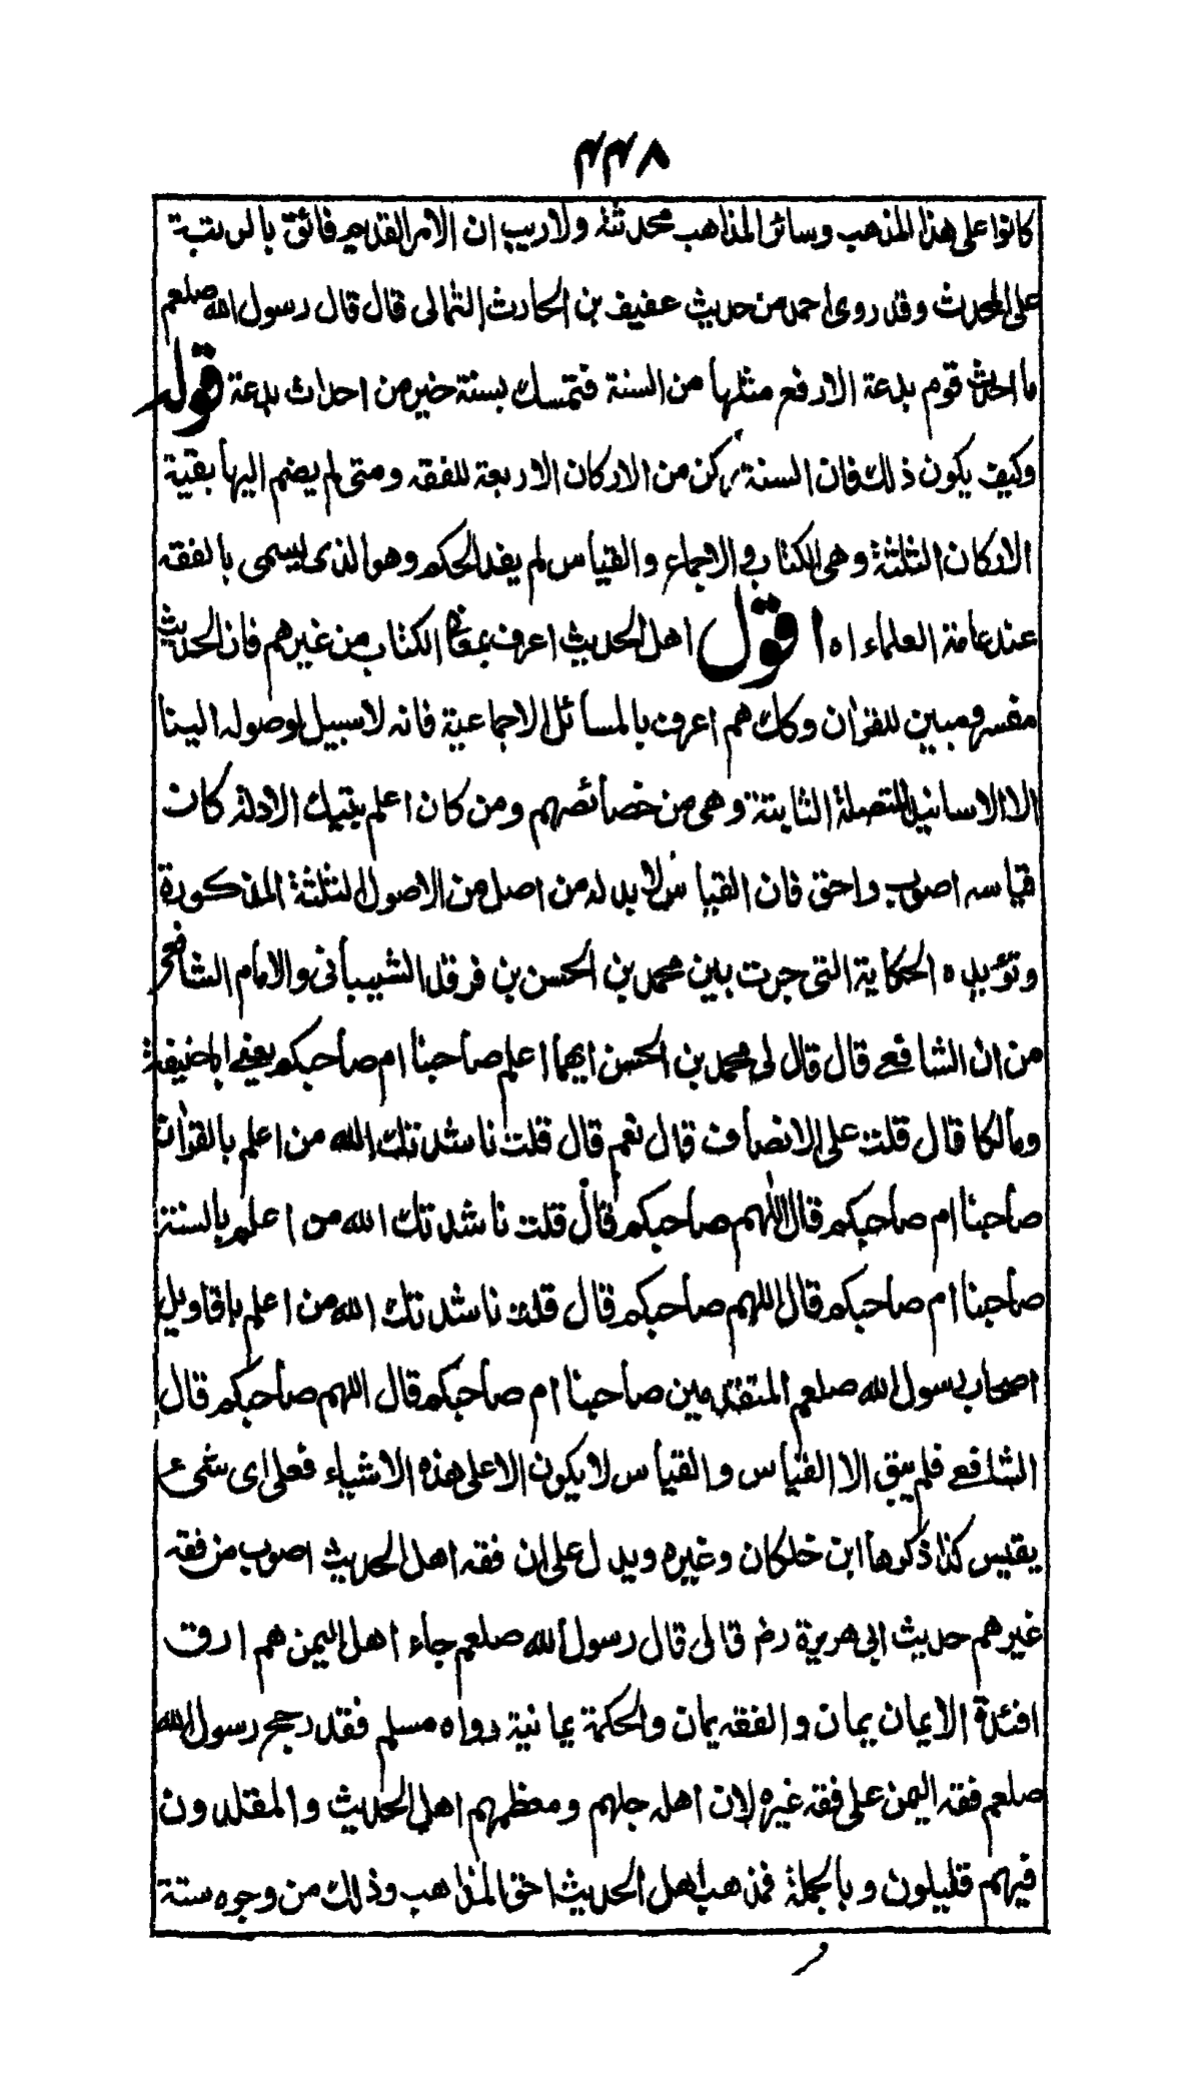 ٤٤٨
كانوا على هذا المذهب وسائر المذاهب محدثة ولا ريب ان الامر القديم فائق بالرتبة
على المحدث وقد روى احمد من حديث عفيف بن الحارث الثمالى قال قال رسول الله صلعم
ما احدث قوم بدعة الا رفع مثلها من السنة فتمسك بسنة خير من احداث بدعة قوله
وكيف يكون ذلك فان السنة ركن من الاركان الاربعة للفقه ومتى لم يضم اليها بقية
الاركان الثلثة وهى الكتاب والاجماع والقياس لم يفد الحكم وهو الذى يسمى بالفقه
عند عامة العلماء اه اقول اهل الحديث اعرف بمغاز الكتاب من غيرهم فان الحديث
مفسر ومبين للقران وكك هم اعرف بالمسائل الاجماعية فانه لا سبيل لوصوله الينا
الا الاسانيد المتصلة الثابتة وهى من خصائصهم ومن كان اعلم بتيك الادلة كان
قياسه اصوب واحق فان القياس لا بد له من اصل من الاصول الثلثة المذكورة
وتؤيده الحكاية التى جرت بين محمد بن الحسن بن فرقد الشيبانى والامام الشافعى
من ان الشافعے قال قال لى محمد بن الحسن ايهما اعلم صاحبنا ام صاحبكم يعنے ابا حنيفة
ومالكا قال قلت على الانصاف قال نعم قال قلت ناشدتك الله من اعلم بالقران
صاحبنا ام صاحبكم قال اللهم صاحبكم قال قلت ناشدتك الله من اعلم بالسنة
صاحبنا ام صاحبكم قال اللهم صاحبكم قال قلت ناشدتك الله من اعلم باقاويل
اصحاب رسول الله صلعم المتقدمين صاحبنا ام صاحبكم قال اللهم صاحبكم قال
الشافعے فلم يبق الا القياس والقياس لا يكون الا على هذه الاشياء فعلى اى شىء
يقيس كذا ذكرها ابن خلكان وغيره ويدل على ان فقه اهل الحديث اصوب من فقه
غيرهم حديث ابى هريرة رض قال قال رسول الله صلعم جاء اهل اليمن هم ارق
افئدة الايمان يمان والفقه يمان والحكمة يمانية رواه مسلم فقد رجح رسول الله
صلعم فقه اليمن على فقه غيره لان اهله جلهم ومعظمهم اهل الحديث والمقلدون
فيهم قليلون وبالجملة فمذهب اهل الحديث احق المذاهب وذلك من وجوه ستة